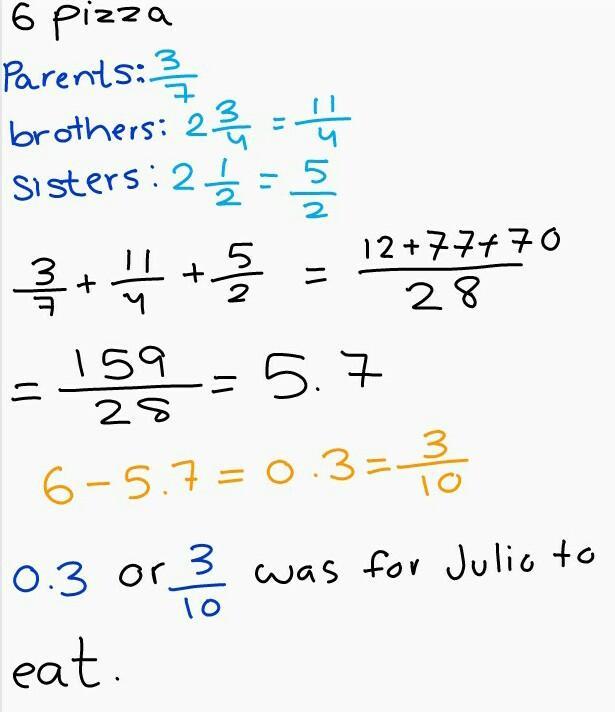 6 pizza
Parents: 3/7
brothers: 2 3/4 = 11/4
sisters: 2 1/2 = 5/2
3/7 + 11/4 + 5/2 = 12+77+70/28
= 159/28 = 5.7
6 - 5.7 = 0.3 = 3/10
0.3 or 3/10 was for Julio to
eat.